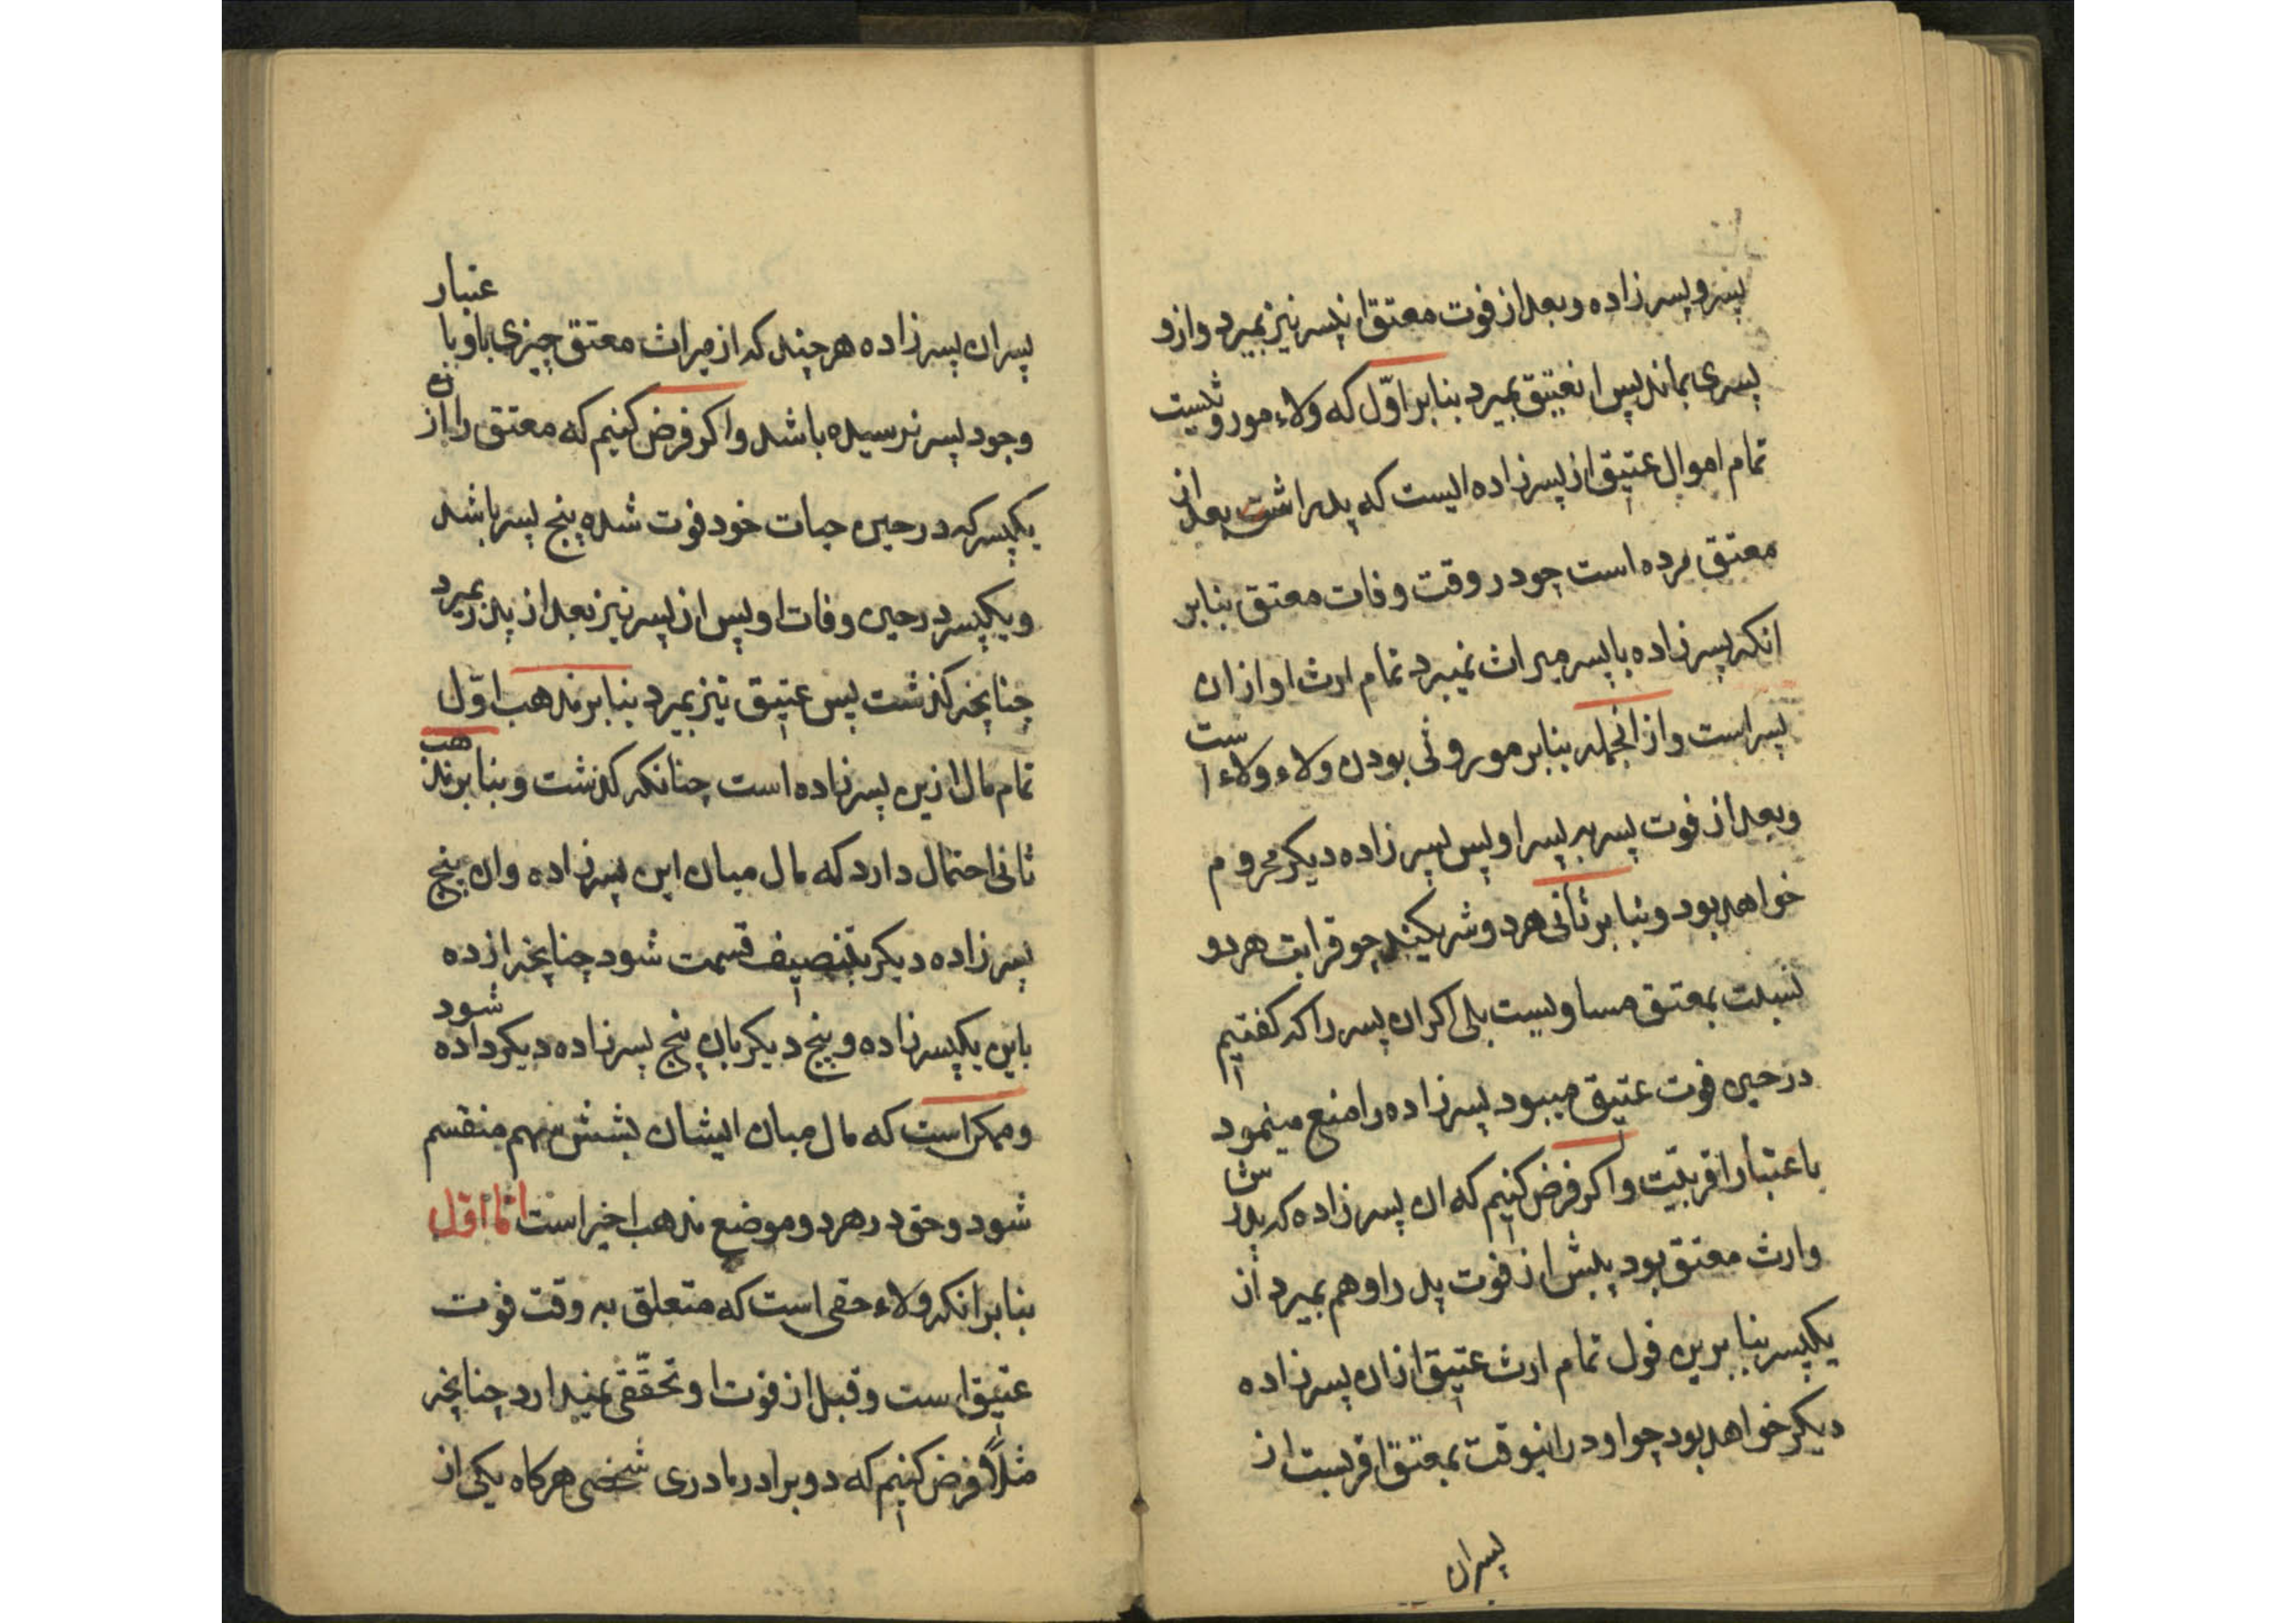 پسر و پسر زاده و بعد از فوت معتق ان پسر نیز بمیرد و ازو
پسری بماند پس ان عتیق بمیرد بنابر اوّل که ولاء موروثیست
تمام اموال عتیق از پسر زاده ایست که پدراشت بعد از
معتق مرده است چو در وقت وفات معتق بنابر
انکه پسر زاده با پسر میراث نمیبرد تمام ارث او از ان
پسر است و از انجمله بنابر موروثی بودن ولاء ولاء است
و بعد از فوت پسر به پسر او پس پسر زاده دیکر محروم
خواهد بود و بنا بر ثانی هر دو شریکند چو قرابت هر دو
نسبت بمعتق مساویست بلی اکر ان پسر را که کفتیم
در حین فوت عتیق میبود پسر زاده را منع مینمود
باعتبار اقربیّت و اکر فرض کنیم که ان پسر زاده که پدرش
وارث معتق بود پیش از فوت پدر او هم بمیرد از
یکپسر بنا برین قول تمام ارث عتیق از ان پسر زاده
دیکر خواهد بود چو او در انیوقت بمعتق اقربست از
پسران
پسران پسر زاده هر چند که از میراث معتق چیزی باو با عتبار
وجود پسر نرسیده باشد و اکر فرض کنیم که معتق را از ان
یکپسر که در حین حیات خود فوت شده پنج پسر باشد
و یکپسر در حین وفات او پس ان پسر نیز بعد از پدر بمیرد
چنانچه کذشت پس عتیق نیز بمیرد بنابر مذهب اوّل
تمام مال ازین پسر زاده است چنانکه کذشت و بنا بر مذهب
ثانی احتمال دارد که مال میان این پسر زاده و ان پنج
پسر زاده دیکر بتنصیف قسمت شود چنانچه از ده
باین یکپسر زاده و پنج دیکر بان پنج پسر زاده دیکر داده شود
و ممکن است که مال میان ایشان بشش سهم منقسم
شود و حق در هر دو موضع مذهب اخیر است امّا اوّل
بنا بر انکه ولاء حقی است که متعلق به وقت فوت
عتیق است و قبل از فوت او تحقّقی نمیدارد چنانچه
مثلاً فرض کنیم که دو برادر مادری شخصی هر کاه یکی از